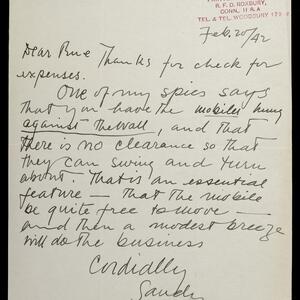 R.F.D. ROXBURY,
CONN.
TEL & TEL. WOODBURY
Feb. 20/42
Dear Pru= Thanks for check for
expenses.
One of my spies says
that you have the mobiles hung
against the wall, and that
there is no clearance so that
they can swing and turn
about. That is an essential
feature — that the mobile
be quite free to move —
and then a modest breeze
will do the business
Cordially
Sandy